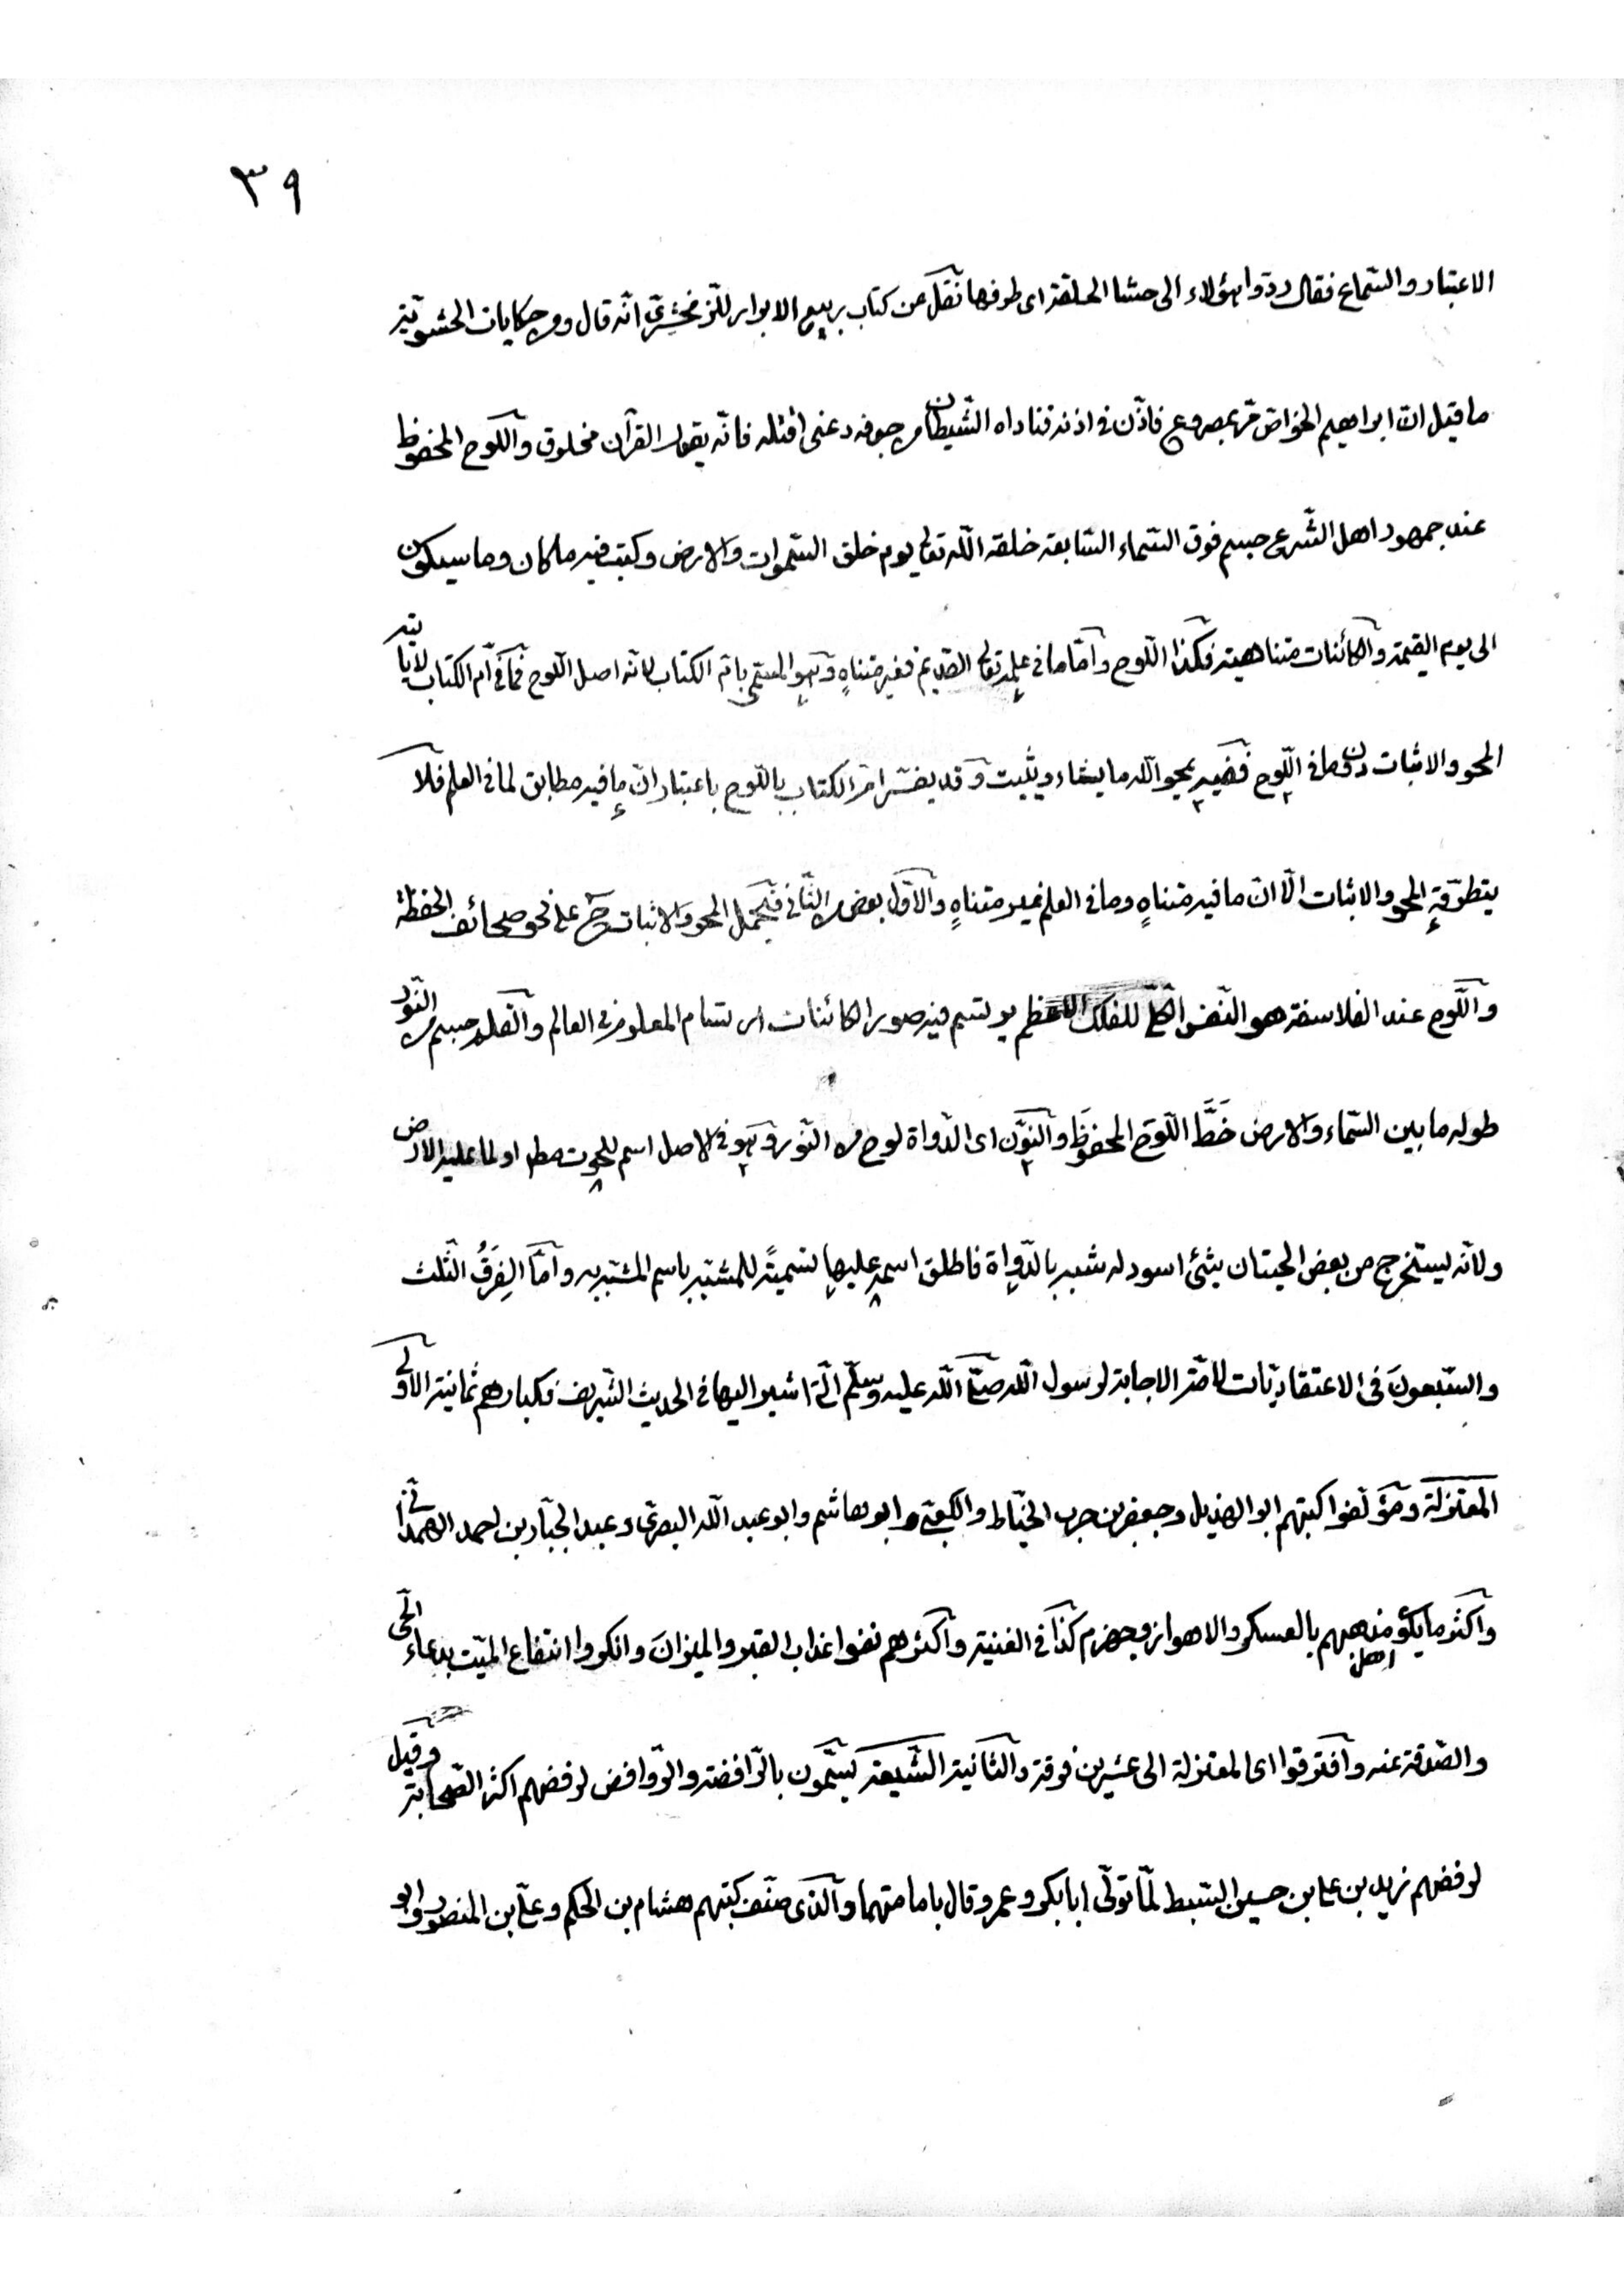 ٣٩
الاعتبار والسّماع فقال ردّوا هؤلاء الى حشا الحلقة اى طرفها نقل من كتاب ربيع الابرار للزّمخشرىّ انّه قال ومن حكايات الحشويّة
ما قيل انّ ابراهيم الخوّاص مرّ بمصروع فاذّن فى اذنه فناداه الشّيطان من جوفه دعنى اقتله فانّه يقول القرآن مخلوق واللّوح المحفوظ
عند جمهور اهل الشّرع جسم فوق السّماء السّابعة خلقه اللّه تعالى يوم خلق السّموات والارض وكتب فيه ما كان وما سيكون
الى يوم القيمة والكائنات متناهية فكذا اللّوح وامّا ما فى علمه تعالى القديم فغير متناهٍ وهو المسمّى بامّ الكتاب لانّه اصل اللّوح فما فى امّ الكتاب لا يأتيه
المحو والاثبات دون ما فى اللّوح ففيه يمحو اللّه ما يشاء ويثبت وقد يفسّر امّ الكتاب باللّوح باعتبار انّ ما فيه مطابق لما فى العلم فلا
يتطرّقه المحو والاثبات الّا انّ ما فيه متناهٍ وما فى العلم غير متناهٍ والاوّل بعض من الثّانى فيحتمل المحو والاثبات ح على نحو صحائف الحفظة
واللّوح عند الفلاسفة هو النّفس الكلّىّ للفلك الاعظم يرتسم فيه صور الكائنات ارتسام المعلوم فى العالم والقلم جسم من النّور
طوله ما بين السّماء والارض خَطَّ اللّوح المحفوظَ والنّون اى الدّواة لوح من النّور وهو فى الاصل اسم للحوت مطلقا او لما عليه الارض
ولانّه يستخرج من بعض الحيتان شئ اسود له شبه بالدّواة فاطلق اسمه عليها تسميةً للمشبّه باسم المشبّه به وامّا الفِرَقُ الثّلث
والسّبعونَ فى الاعتقاديّات لامّة الاجابة لرسول اللّه صلّى اللّه عليه وسلّم الّتى اشير اليها فى الحديث الشّريف فكبارهم ثمانية الاولى
المعتزلة ومؤلّفوا كتبهم ابو الهذيل وجعفر بن حرب الخيّاط والكعبىّ وابو هاشم وابو عبد اللّه البصرىّ وعبد الجبّار بن احمد الهمدانىّ
واكثر ما يكون اهل مذهبهم بالعسكر والاهواز وجهرم كذا فى الغنية واكثرهم نفوا عذاب القبر والميزانَ وانكروا انتفاع الميّت بدعاء الحىّ
والصّدقة عنه وافترقوا اى المعتزلة الى عشرين فرقة والثانية الشّيعة يسمّون بالرّافضة والرّوافض لرفضهم اكثر الصّحابة وقيل
لرفضهم زيد بن على بن حسين السّبط لمّا تولّى ابا بكر وعمر وقال بامامتهما والّذى صنّف كتبهم هشام بن الحكم وعلىّ بن المنصور وابو